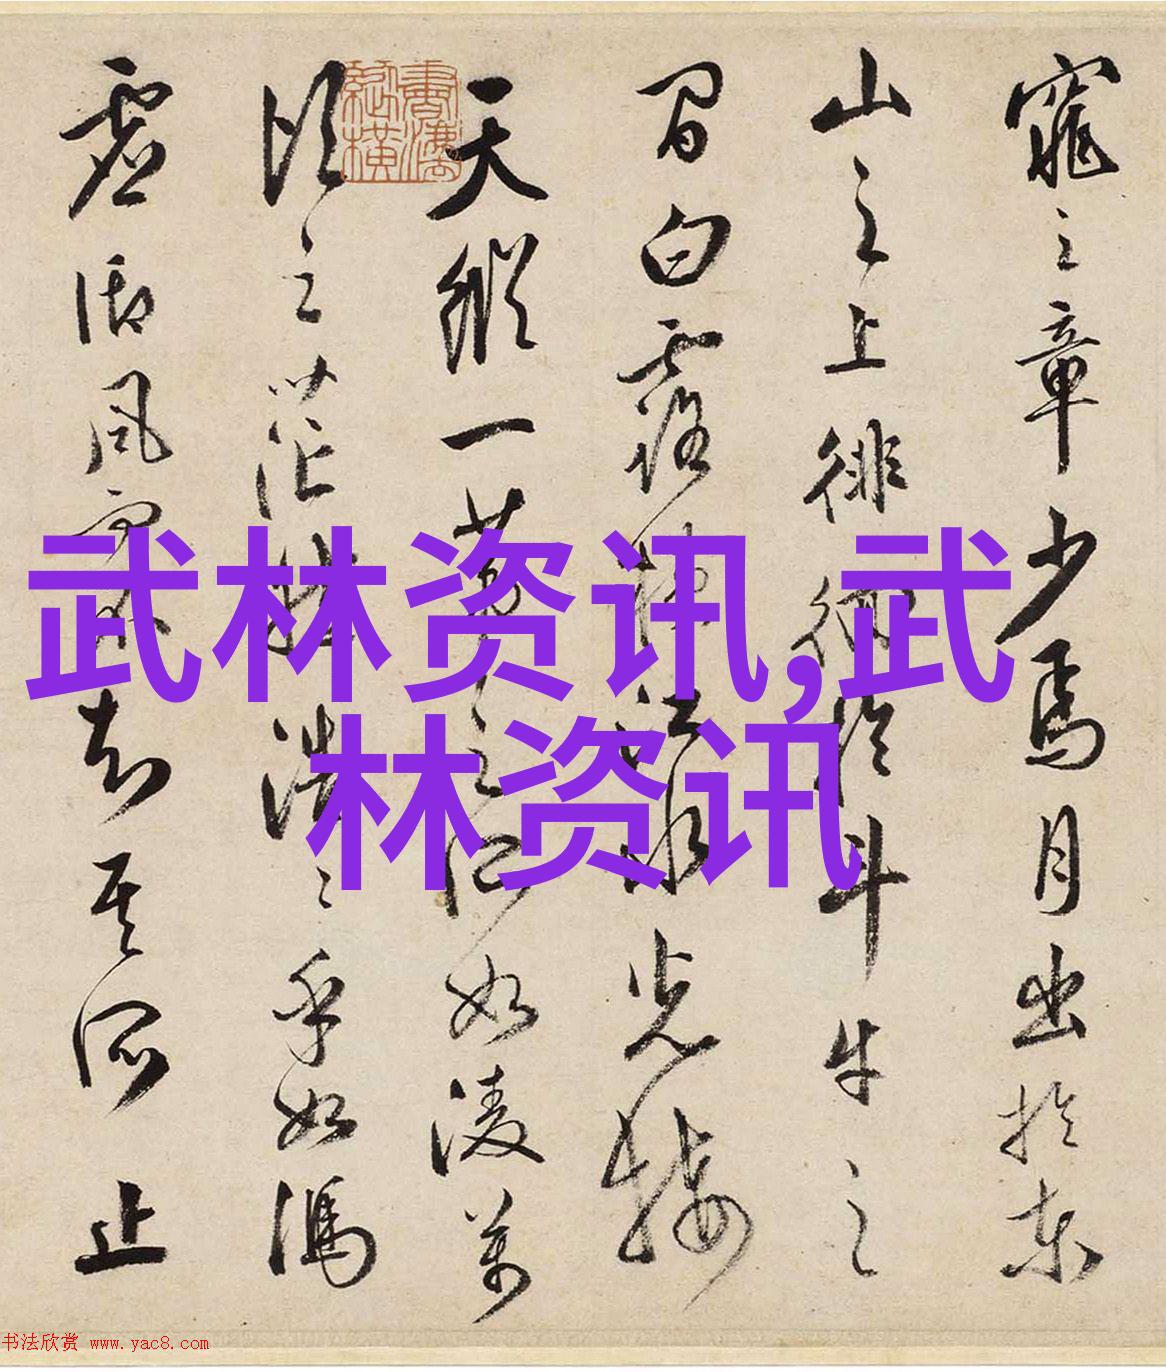 窕之章少焉月出於東
山之上徘徊於斗牛之
間白露橫江水光接
天縱一葦之所如凌萬
頃之茫然浩〻乎如馮
虛御風而不知其所止
書學縱橫
武林资讯,武
林资讯
书法欣赏 www.yac8.com